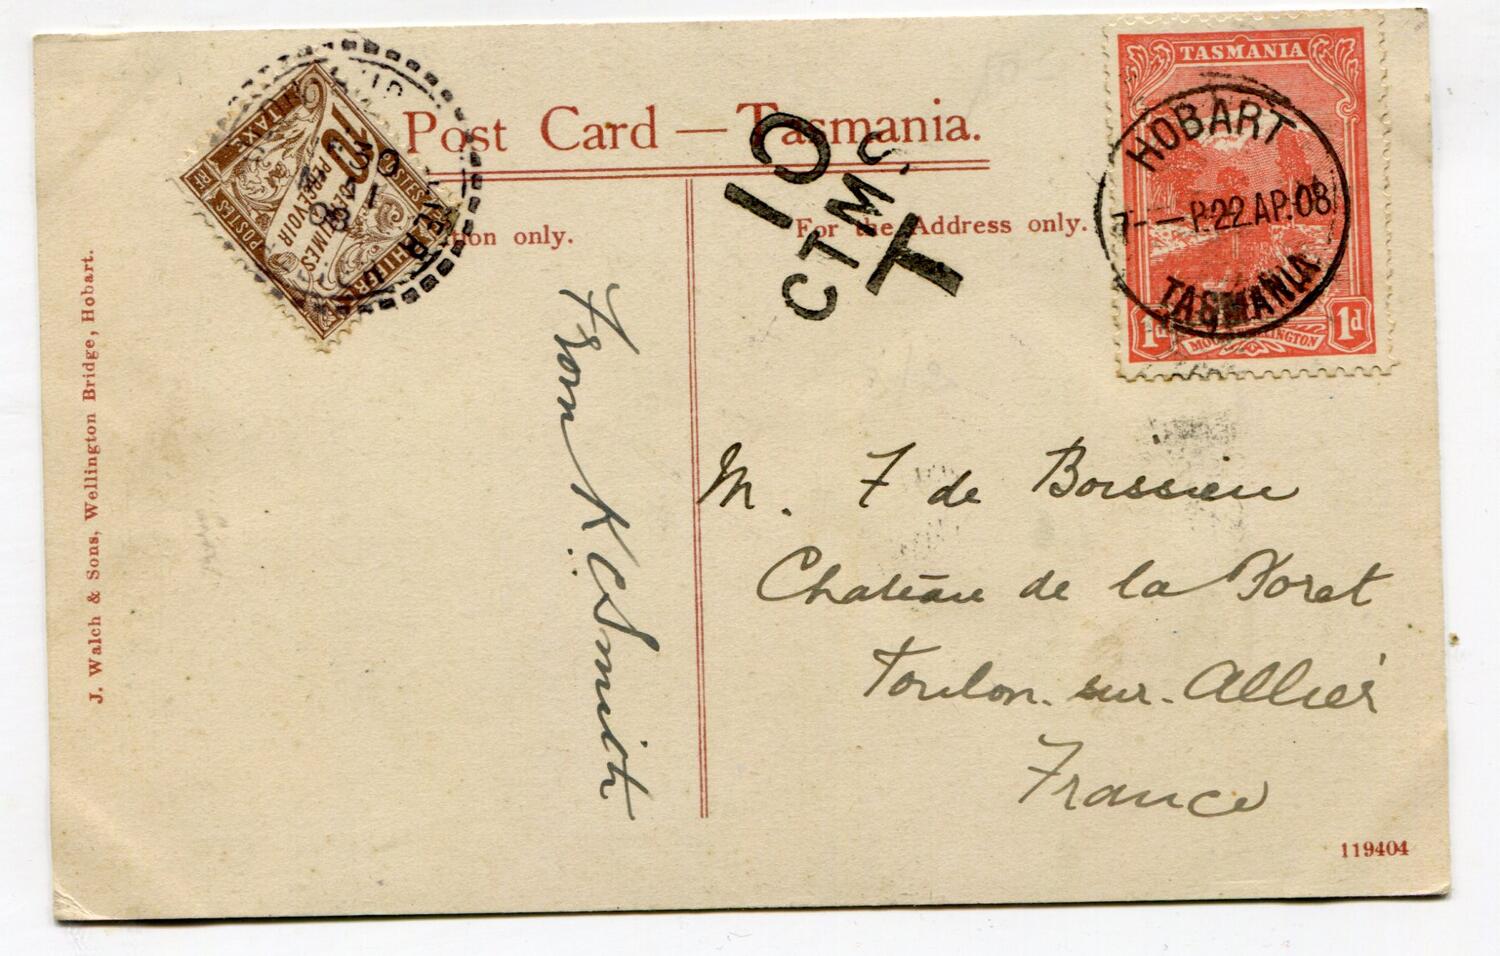 Post Card — Tasmania.
For the Address only.
only.
J. Walch & Sons, Wellington Bridge, Hobart.
119404
TASMANIA
1d
1d
HOBART
P.22.AP.08
TASMANIA
10
CTMS
T
CHIFFRE
TAXE
POSTES
RF
10
CENTIMES
PERCEVOIR
From K. C. Smith
M. F de Boissieu
Chateau de la Foret
Toulon. sur. Allier
France